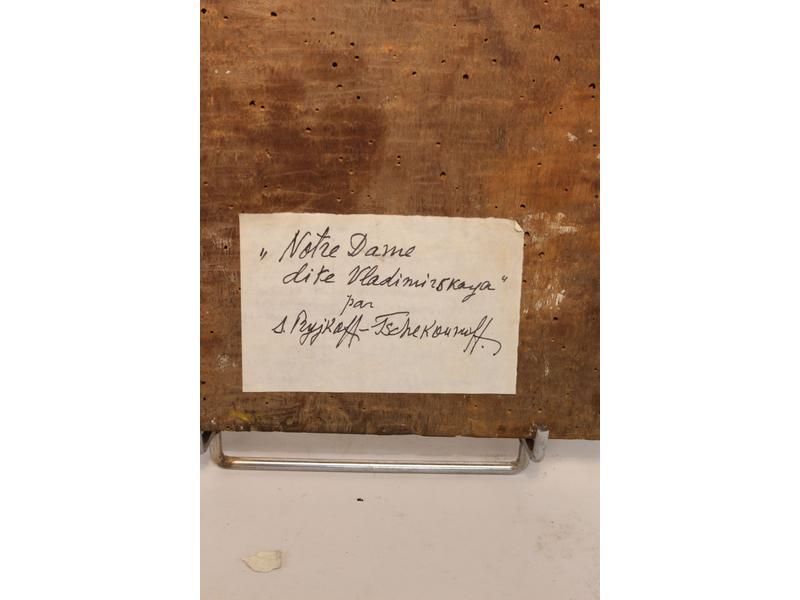 „ Notre Dame
dite Vladimirskaya"
par
S. Ryjkoff-Tschekounoff.